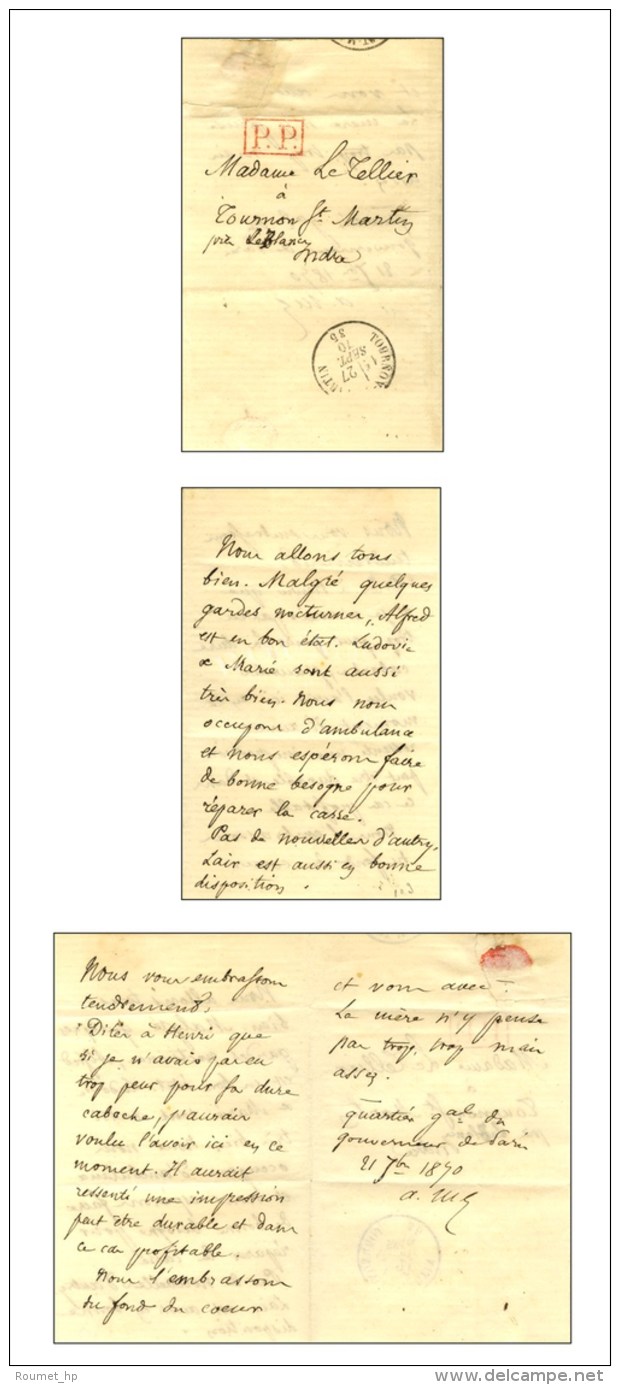 P.P.
Madame Le Tellier
à
Tournon St Martin
près LeBlanc
Indre
TOURNON
27
SEPT.
70
35
Nous allons tous
bien. Malgré quelques
gardes nocturnes, Alfred
est en bon état. Ludovic
& Marie sont aussi
très bien. Nous nous
occupons d'ambulance
et nous espérons faire
de bonne besogne pour
réparer la casse.
Pas de nouvelles d'autry,
Lair est aussi en bonne
disposition.
Nous vous embrassons
tendrement,
Dites à Henri que
si je n'avais pas eu
trop peur pour sa dure
caboche, j'aurais
voulu l'avoir ici en ce
moment. Il aurait
ressenti une impression
peut être durable et dans
ce cas profitable.
Nous l'embrassons
du fond du coeur
et vous avec.
La mère n'y pense
pas trop, trop mais
assez.
quartier gal du
gouverneur de Paris
21 7bre 1870
Roumet_hp
delcampe.net